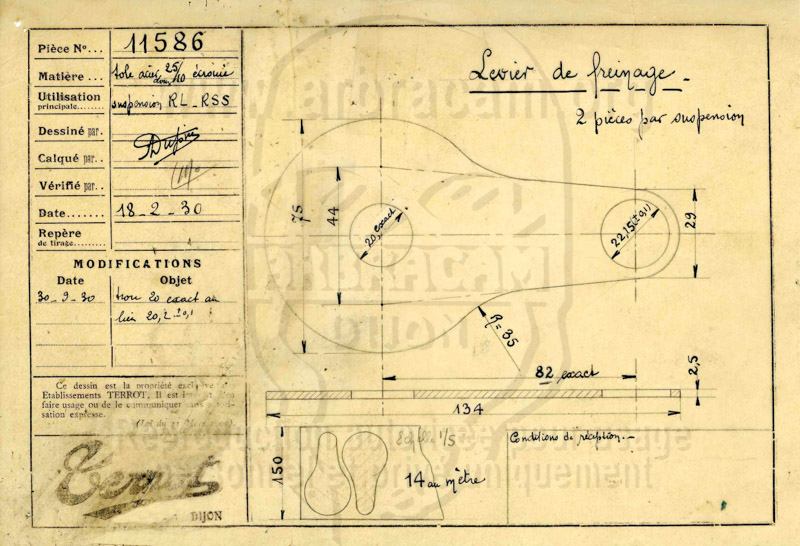 Pièce N°... 11586
Matière ... tole acier 25/10 écrouie
Utilisation
principale... suspension RL - RSS
Dessiné par.
Calqué par..
Vérifié par..
Date....... 18 - 2 - 30
Repère
de tirage...
MODIFICATIONS
Date Objet
30 - 9 - 30 trou 20 exact au
lieu 20,2 ± 0,1
Ce dessin est la propriété
Etablissements TERROT. Il est
faire usage ou de le communiquer sans
sation expresse.
Terrot
DIJON
Levier de freinage -
2 pièces par suspension
75
44
20, exact
22,15 (± 0,1)
29
R = 35
82 exact
2,5
134
150
Echelle 1/5
14 au mètre
Conditions de réception. -
ARBRACAM
DIJON